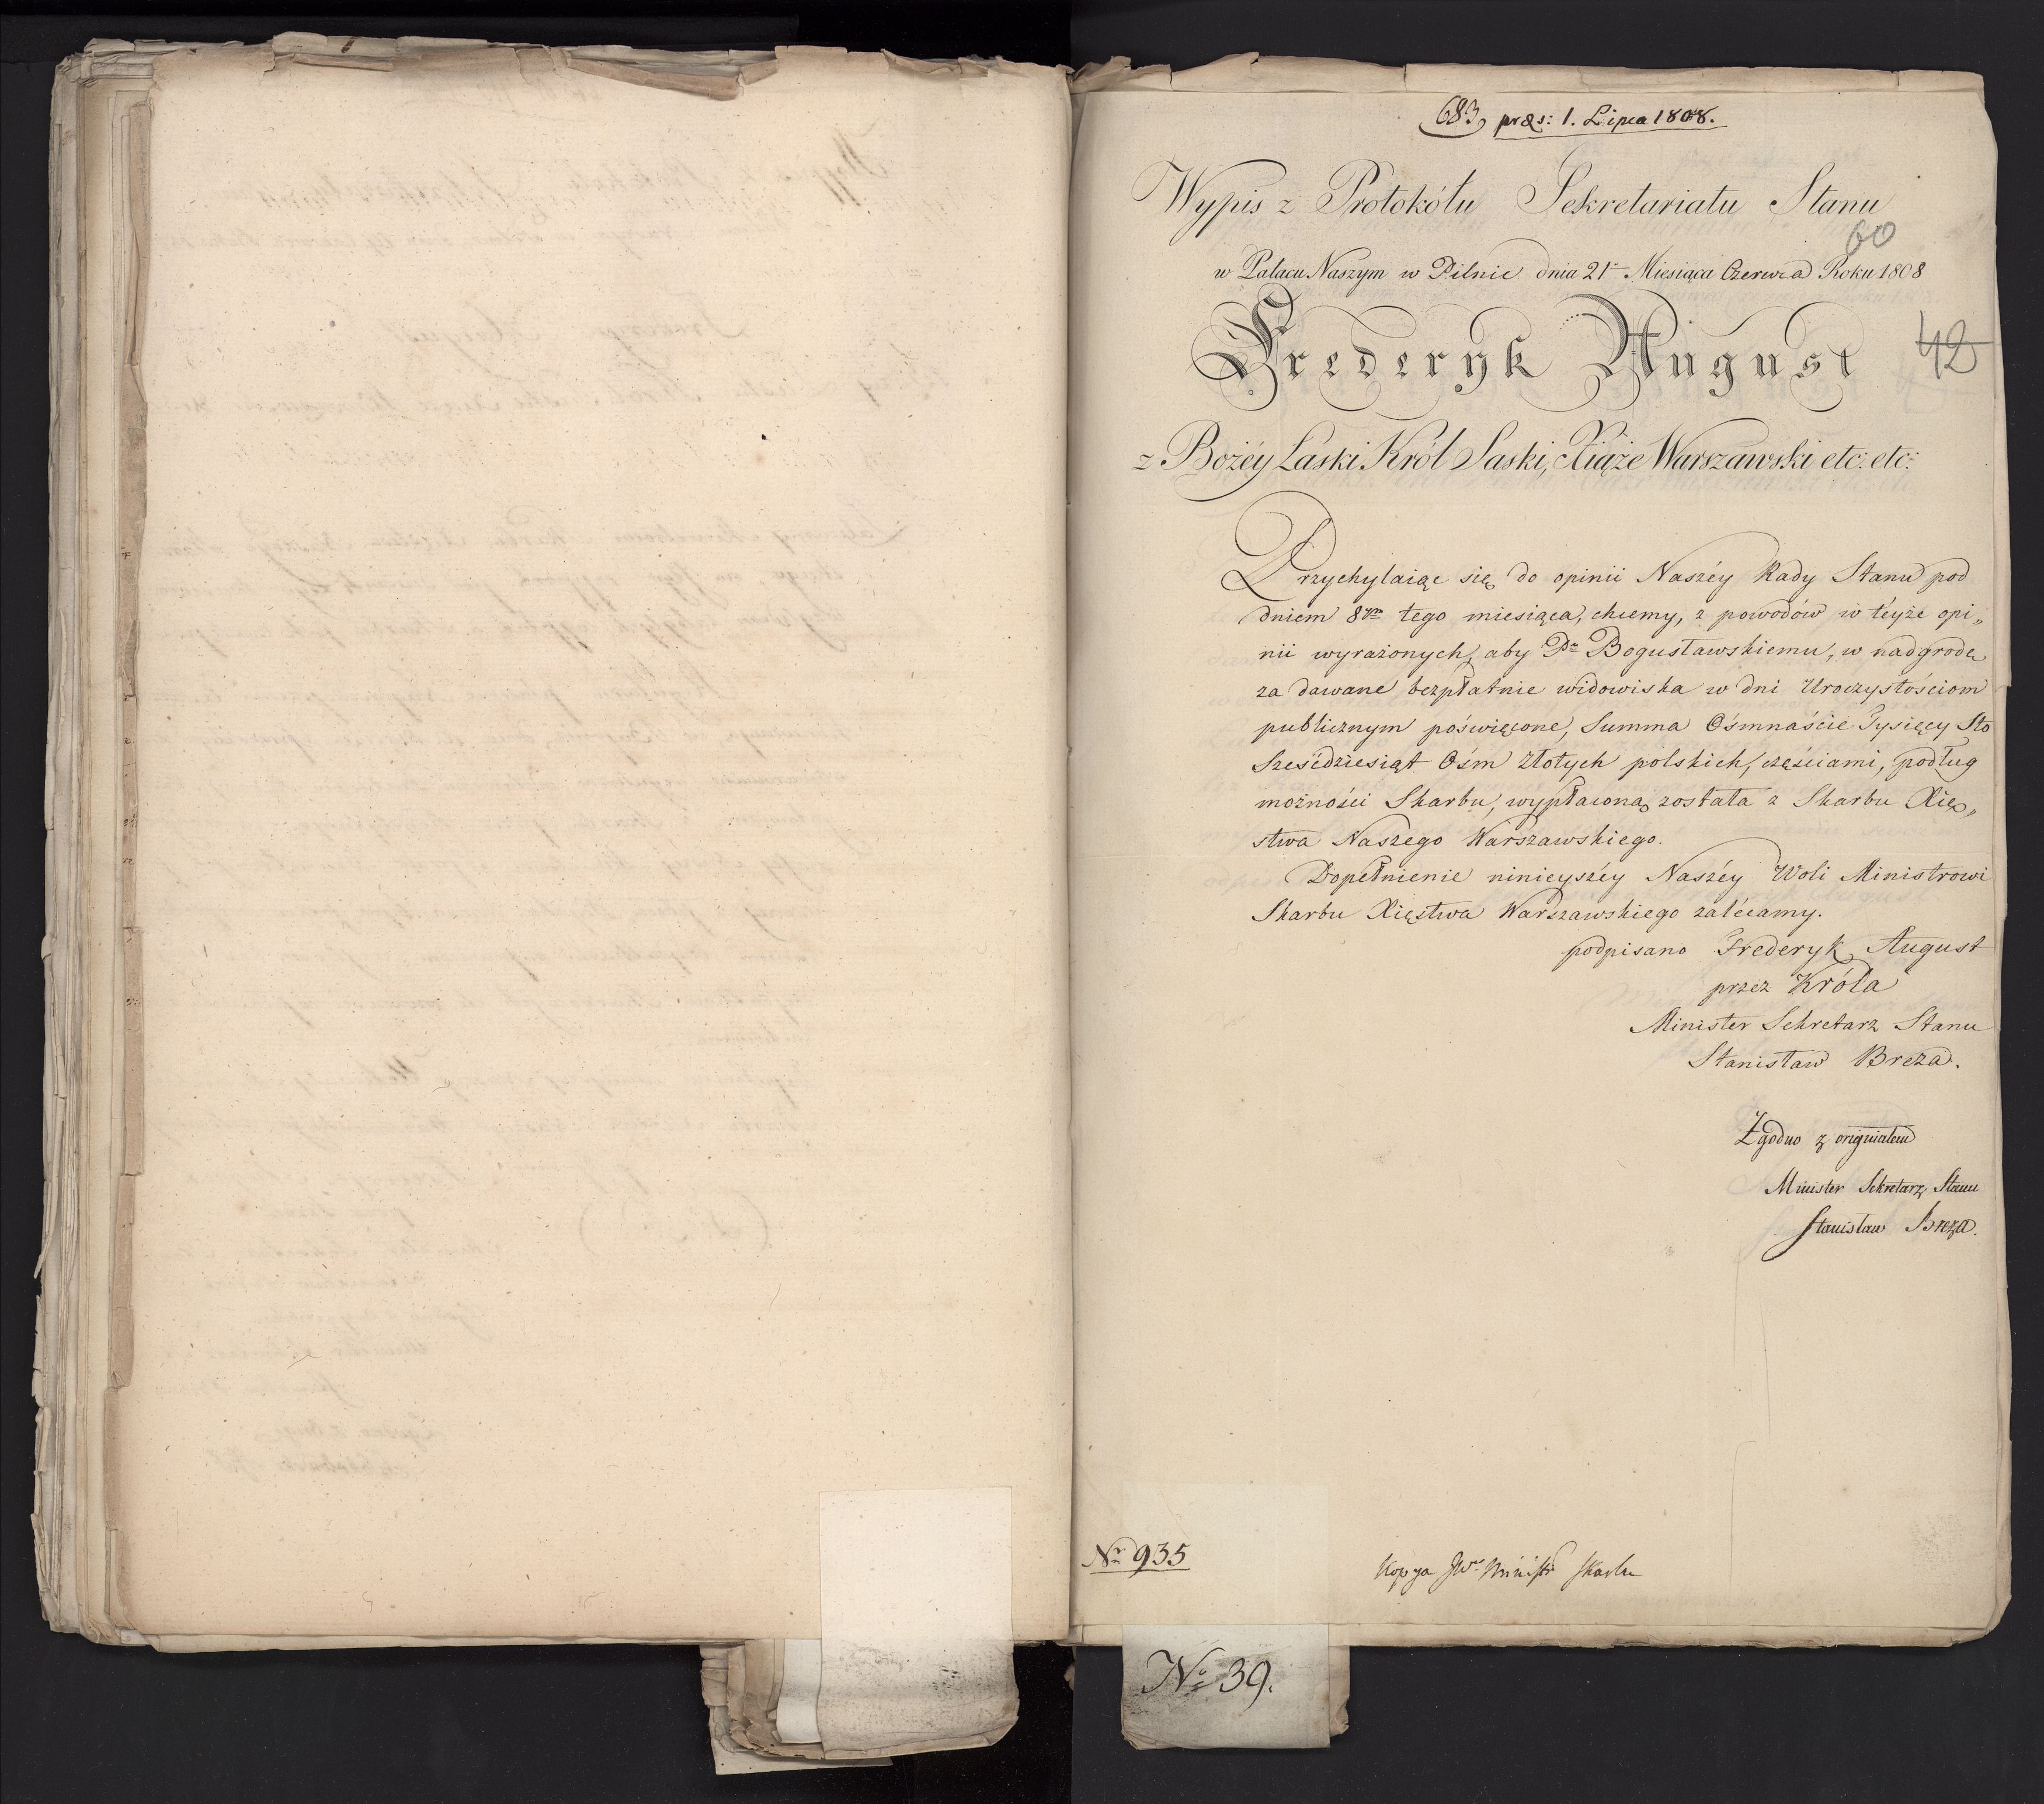 683, præs: 1. Lipca 1808.
Wypis z Protokółu Sekretariatu Stanu
60
w Pałacu Naszym w Pilnic dnia 21 Miesiąca Czerwca Roku 1808
Frederyk August
42
z Bożéy Łaski Król Saski, Xiąże Warszawski etc: etc:
Przychylaiąc się do opinii Naszéy Rady Stanu pod
dniem 8ym tego miesiąca, chcemy, z powodów w téyże opi„
nii wyrażonych, aby Pu Bogusławskiemu, w nadgrodę
za dawane bezpłatnie widowiska w dni Uroczystościom
publicznym poświęcone, Summa Ośmnaście Tysięcy Sto
Sześćdziesiąt Ośm złotych polskich, częściami, podług
możności Skarbu, wypłaconą została z Skarbu Xię„
stwa Naszego Warszawskiego.
Dopełnienie ninieyszéy Naszéy Woli Ministrowi
Skarbu Xięstwa Warszawskiego zalécamy.
podpisano Frederyk August
przez Króla
Minister Sekretarz Stanu
Stanisław Breza.
Zgodno z originałem
Minister Sekretarz Stanu
Stanisław Breza.
Nr 935
Kopya JWo Ministr Skarbu
No 39.